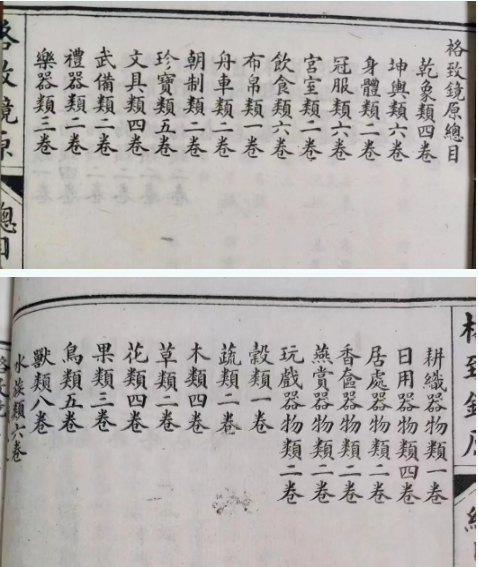 格致鏡原總目
乾象類四卷
坤輿類六卷
身體類二卷
冠服類六卷
宮室類二卷
飲食類六卷
布帛類一卷
舟車類二卷
朝制類二卷
珍寶類五卷
文具類四卷
武備類二卷
禮器類二卷
樂器類三卷
格致鏡原
總目
格致鏡原
耕織器物類一卷
日用器物類四卷
居處器物類二卷
香奩器物類二卷
燕賞器物類二卷
玩戲器物類二卷
穀類一卷
蔬類二卷
木類四卷
草類二卷
花類四卷
果類三卷
鳥類五卷
獸類八卷
水族類六卷